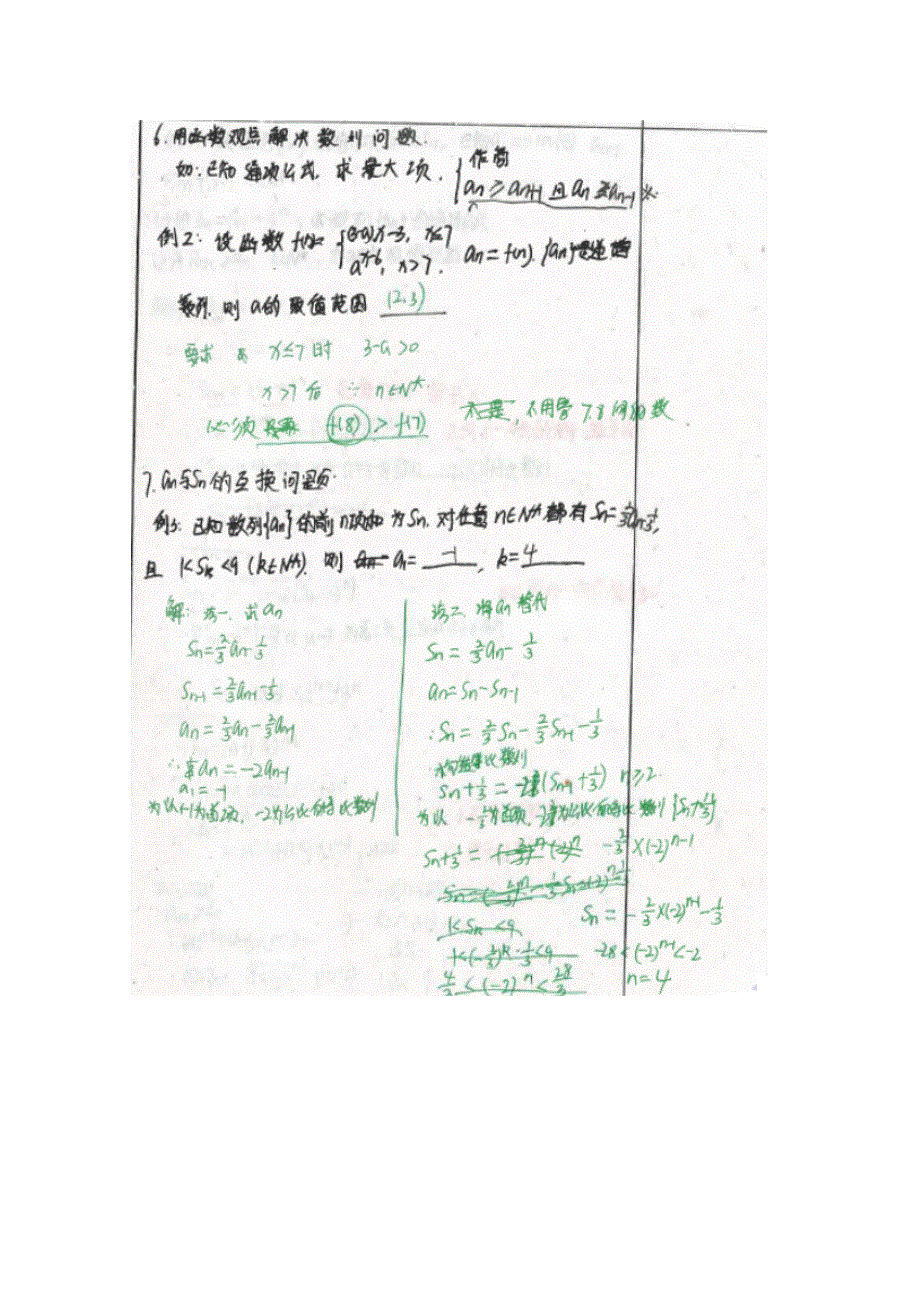 6.用函数观点解决数列问题.
如:已知通项公式,求最大项. { 作商
an≥an+1且an≥an-1 ※
例2:设函数f(x)= { (3-a)x-3, x≤7
a^{x-6}, x>7. an=f(n), {an}是递增
数列,则a的取值范围 (2,3)
要求 x≤7时 3-a>0
x>7后 ∵n∈N*
必须 f(8)>f(7) 不用管7.8间函数
7.an与Sn的互换问题:
例:已知数列{an}的前n项和为Sn,对任意n∈N*都有Sn=2/3an-1/3,
且1<Sk<9(k∈N*),则 a1= -1 , k= 4
解:法一,求an
Sn=2/3an-1/3
Sn-1=2/3an-1-1/3
an=2/3an-2/3an-1
∴an=-2an-1
a1=-1
为以-1为首项,-2为公比的等比数列
法二,将an替代
Sn=2/3an-1/3
an=Sn-Sn-1
∴Sn=2/3Sn-2/3Sn-1-1/3
构造等比数列
Sn+1/3=-2(Sn-1+1/3) n≥2
为以-2/3为首项,-2为公比的等比数列{Sn+1/3}
Sn+1/3= -2/3×(-2)^{n-1}
Sn=-2/3×(-2)^{n-1}-1/3
1<Sk<9
-28<(-2)^{n+1}<-2
n=4